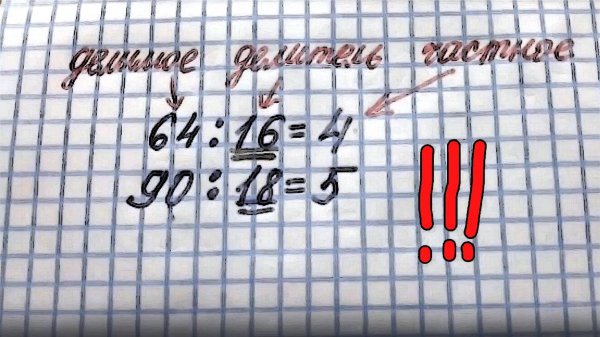 делимое делитель частное
64 : 16 = 4
90 : 18 = 5
!!!